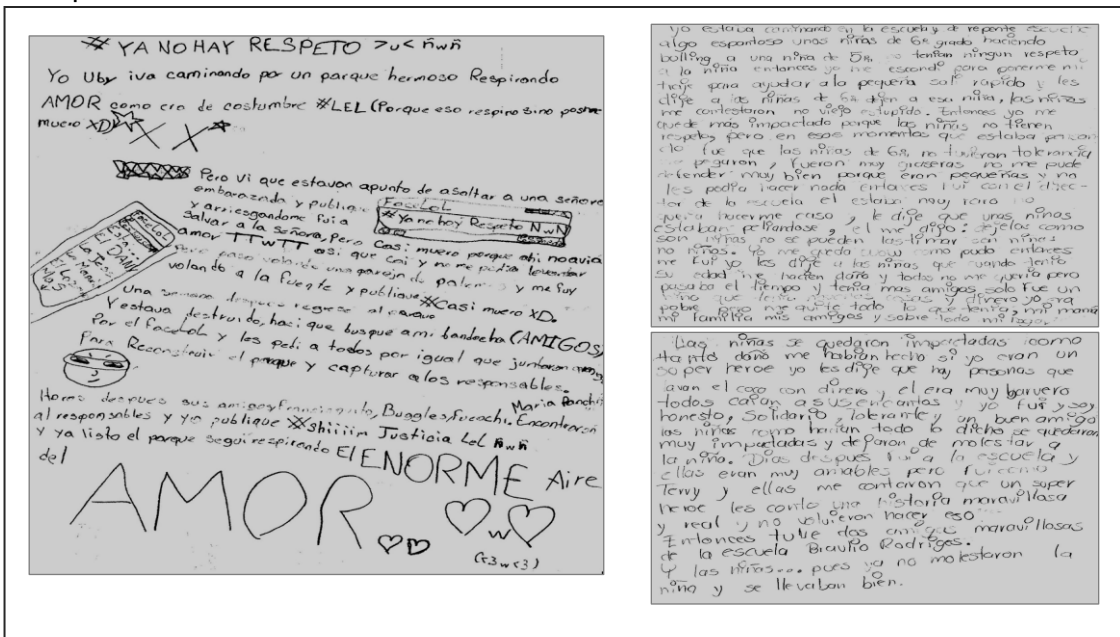 # YA NO HAY RESPETO >u< ñwñ
Yo Uby iva caminando por un parque hermoso Respirando
AMOR como era de costumbre #LEL (Porque eso respiro sino
muero XD)
Pero vi que estavan apunto de asaltar a una señora
embarazada y publique
FaceLoL
# Ya no hay Respeto NwN
y arriesgandome fui a
salvar a la señora, pero Casi muero porque ahi no avia
amor TTwTT asi que caí y no me podia levantar
pero paso volando una pareja de y me fuy
volando a la fuente y publique #Casi muero XD.
FaceLoL
El DAILY
Una semana despues regrese al parque
Y estava destruido, haci que busque a mi bandocha (AMIGOS)
Por el faceLoL y les pedi a todos por igual que juntaran
Para Reconstruir el parque y capturar a los responsables.
Horas despues sus amigos Francisquito, Buggles, Fucochi, Maria Panchis Encontraron
al responsables y yo publique #Shiiiim Justicia LeL ñwñ
Y ya listo el parque segui respirando El ENORME Aire
del
AMOR
w
(<3w<3)
yo estaba caminando en la escuela y de repente escuche
algo espantoso unas niñas de 6º grado haciendo
bolling a una niña de 5º, no tenian ningun respeto
a la niña entonces yo me escondi para ponerme mi
traje para ayudar a la pequeña sali rapido y les
dije a las niñas de 6º dejen a esa niña, las niñas
me contestaron no viejo estupido. Entonces yo me
quede más impactado porque las niñas no tienen
respeto, pero en esos momentos que estaba
do fue que las niñas de 6º no tuvieron tolerancia
me pegaron, fueron muy groseras no me pude
defender muy bien porque eran pequeñas y no
les podia hacer nada entonces fui con el direc-
tor de la escuela el estaba muy raro no
queria hacerme caso, le dige que unas niñas
estaban peliandose, el me digo: dejelas como
son niñas no se pueden lastimar son niñas
no niños. Yo me quede como pudo entonces
me fui yo les dije a las niñas que cuando tenia
su edad me hacian daño y todos no me queria pero
pasaba el tiempo y tenia mas amigos solo fue un
niño que tenia muchas cosas y dinero yo era
pobre pero no quite todo lo que tenia, mi mamá
mi familia mis amigos y sobre todo mi
Las niñas se quedaron impactadas como
tanto daño me habian hecho si yo eran un
soper heroe yo les dige que hay personas que
lavan el coco con dinero y el era muy barvero
todos caian a sus encantos y yo fui y soy
honesto, solidario, tolerante y un ben amigo
las niñas como harian todo lo dicho se quedaron
muy impactadas y dejaron de molestar a
la niña. Dias despues fui a la escuela y
ellas eran muy amables pero fui como
Terry y ellas me contaron que un super
heroe les conto una historia maravillosa
y real y no volvieron hacer eso
Entonces tuve dos amigas maravillosas
de la escuela Braulio Rodrigez.
Y las niñas... pues ya no molestaron la
niña y se llevaban bien.